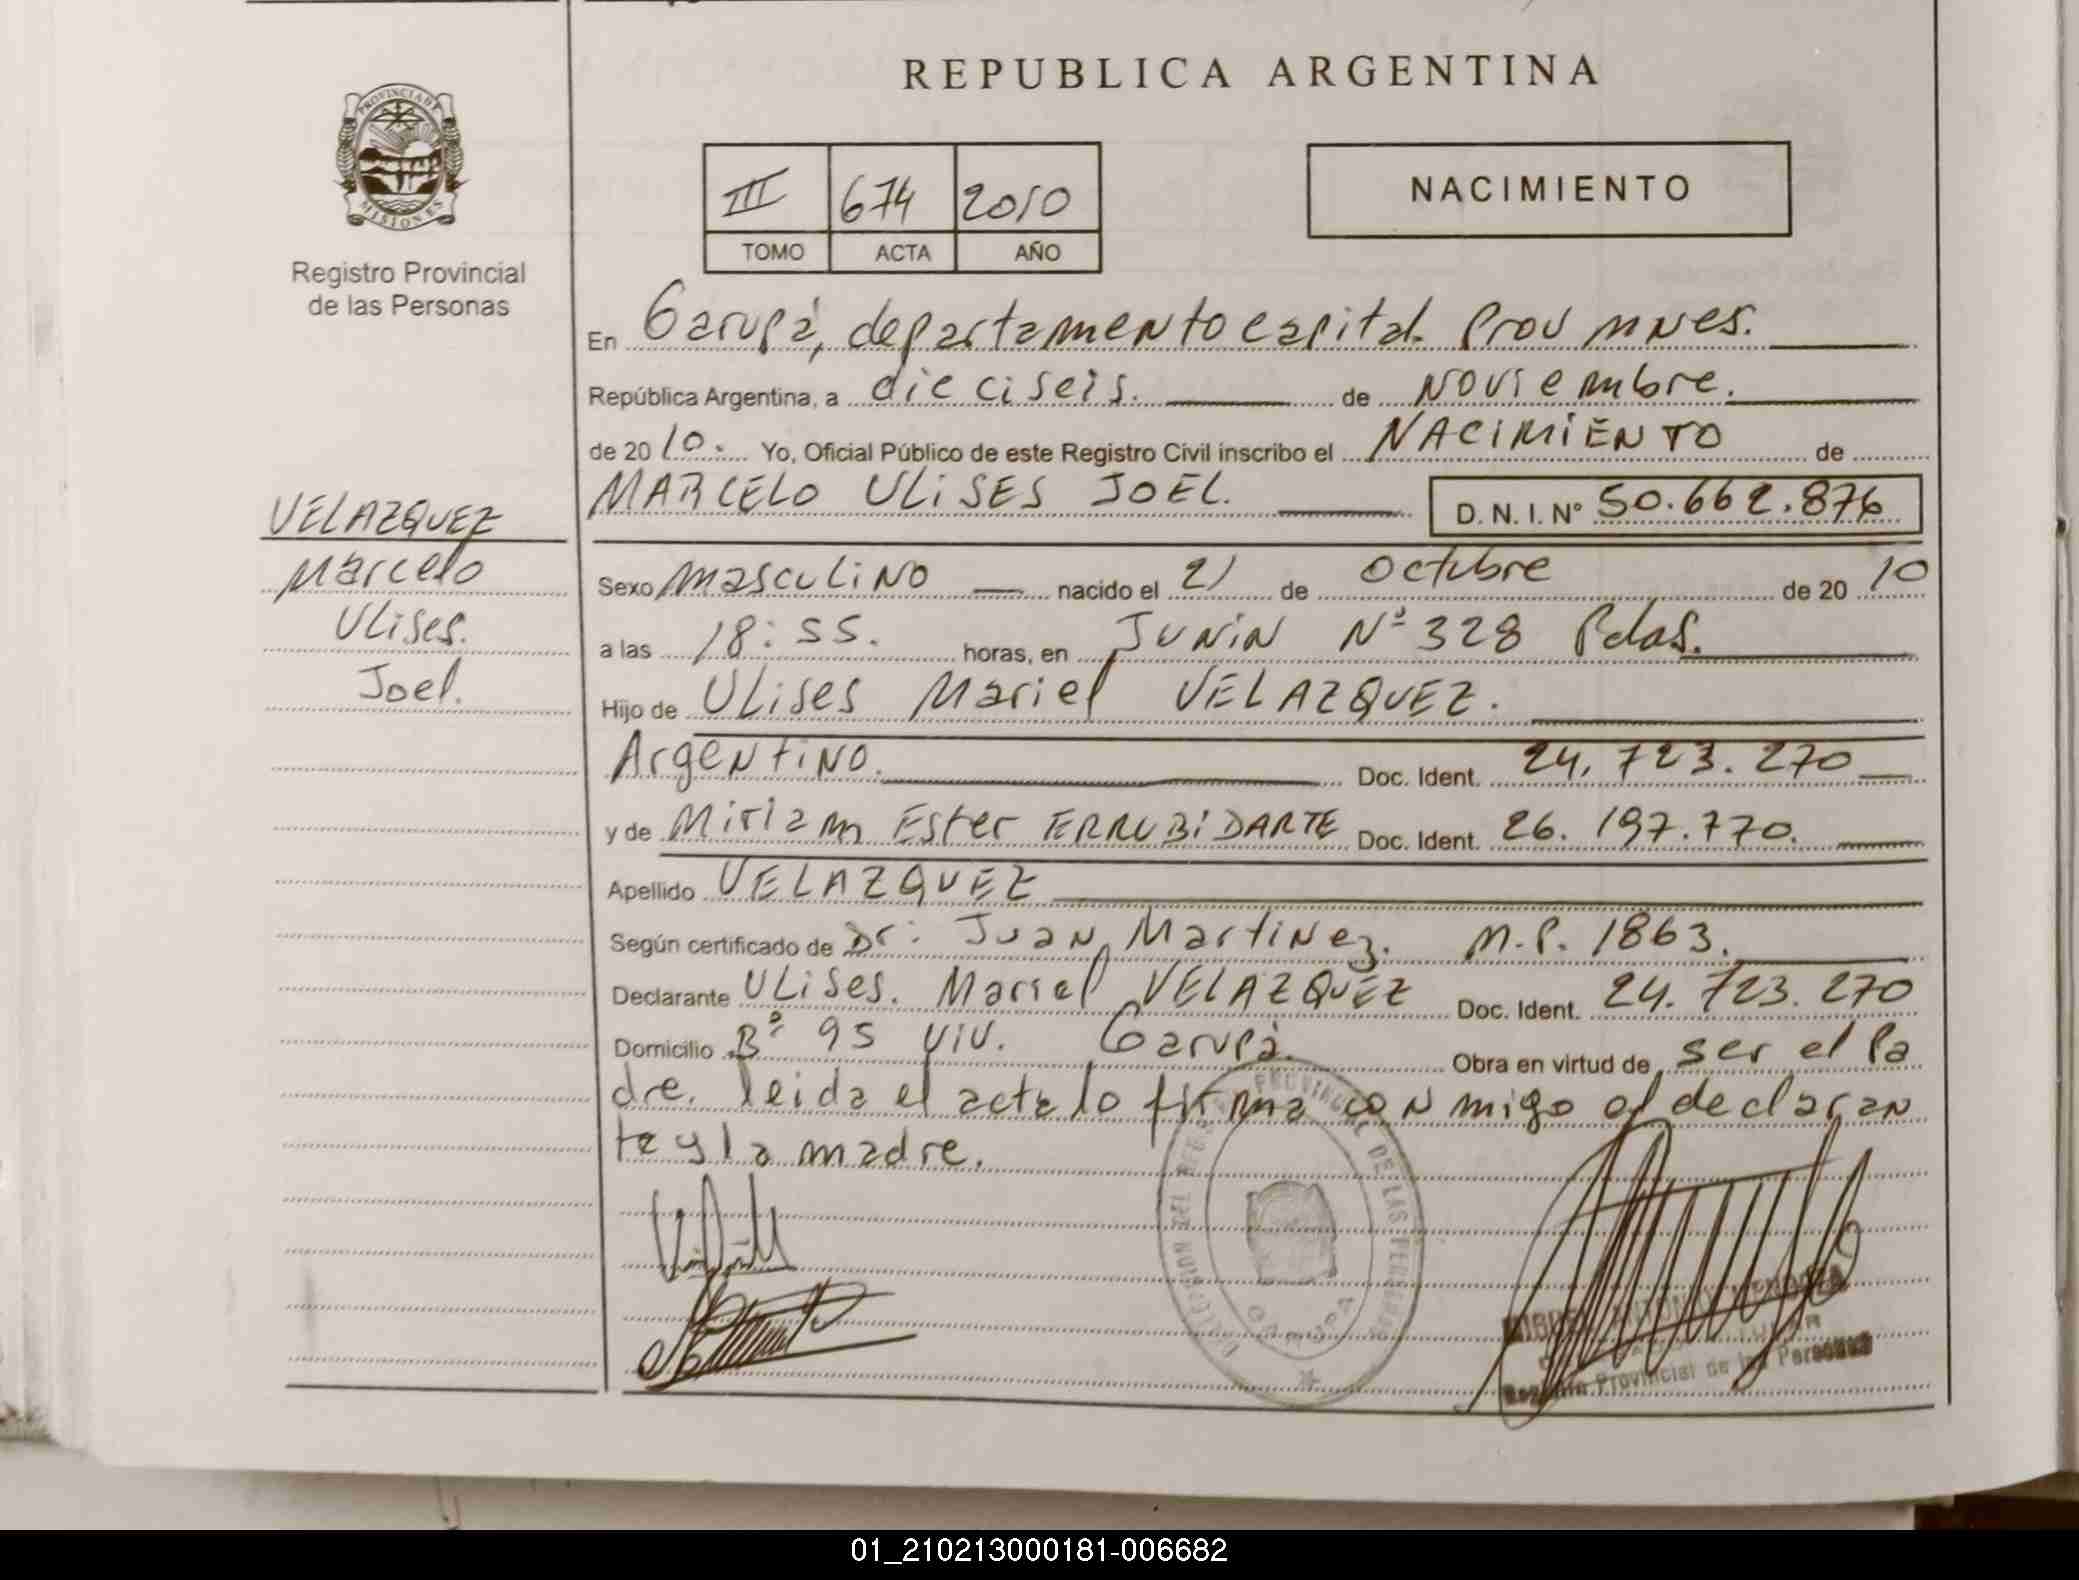 REPUBLICA ARGENTINA
PROVINCIA DE
MISIONES
Registro Provincial
de las Personas
III 674 2010
TOMO ACTA AÑO
NACIMIENTO
En Garupá, departamento capital. Prov Mnes.
República Argentina, a dieciseis. de Noviembre.
de 2010. Yo, Oficial Público de este Registro Civil inscribo el NACIMIENTO de
MARCELO ULISES JOEL. D. N. I. N° 50.662.876
VELAZQUEZ
Marcelo
Ulises.
Joel.
Sexo masculino nacido el 21 de octubre de 2010
a las 18:55. horas, en JUNIN Nº 328 Pdas.
Hijo de Ulises Mariel VELAZQUEZ.
Argentino. Doc. Ident. 24.723.270
y de Miriam Ester ERRUBIDARTE Doc. Ident. 26.197.770.
Apellido VELAZQUEZ
Según certificado de Dr: Juan Martinez. M.P. 1863.
Declarante Ulises. Mariel VELAZQUEZ Doc. Ident. 24.723.270
Domicilio Bº 95 viv. Garupá. Obra en virtud de ser el Pa
dre. leida el acta lo firma conmigo el declaran
te y la madre.
PROVINCIAL DE LAS PERSONAS
GARUPA
MENDOZA
Registro Provincial de las Personas
01_210213000181-006682